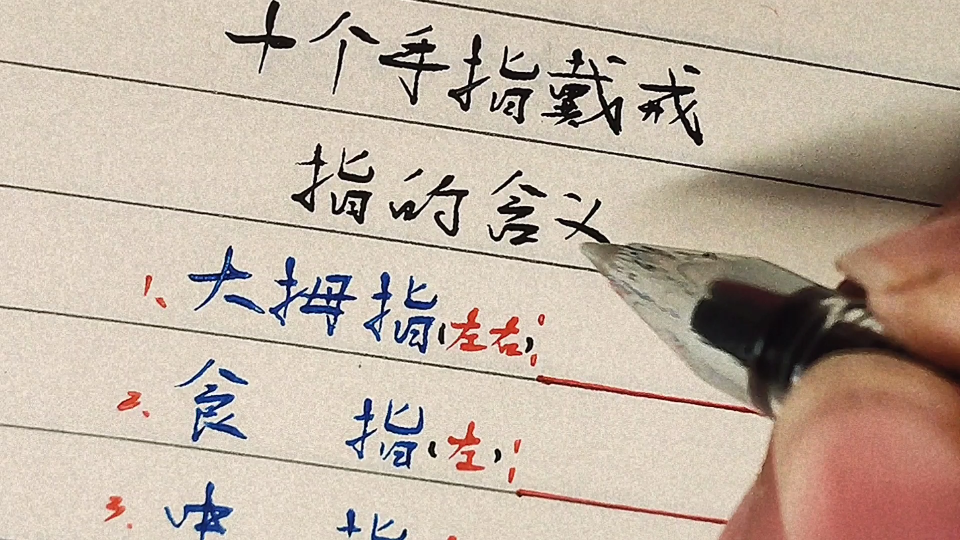 十个手指戴戒
指的含义
1、大拇指(左右);
2、食 指(左);
3、中 指